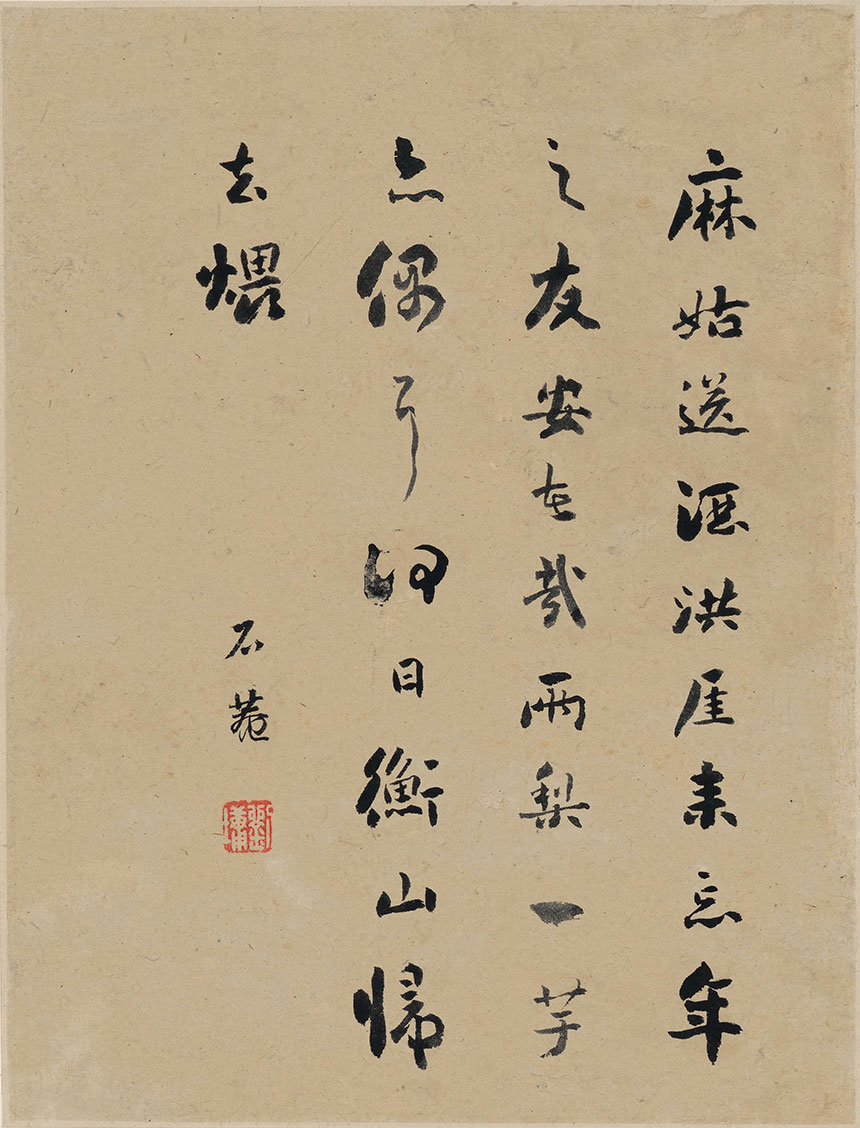 麻姑送酒洪厓来忘年
之友安在哉兩梨一芋
亦偶尔何日衡山歸
去煨
石菴
劉墉